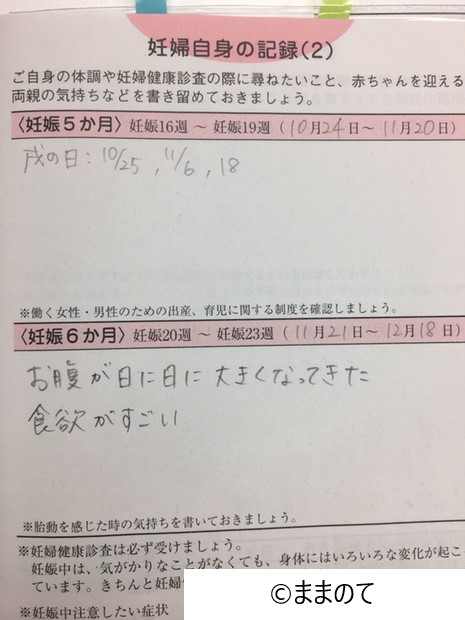 妊婦自身の記録(2)
ご自身の体調や妊婦健康診査の際に尋ねたいこと、赤ちゃんを迎える
両親の気持ちなどを書き留めておきましょう。
〈妊娠5か月〉妊娠16週 ～ 妊娠19週(10月24日～11月20日)
戌の日：10/25 , 11/6 , 18
※働く女性・男性のための出産、育児に関する制度を確認しましょう。
〈妊娠6か月〉妊娠20週 ～ 妊娠23週(11月21日～12月18日)
お腹が日に日に大きくなってきた
食欲がすごい
※胎動を感じた時の気持ちを書いておきましょう。
※妊婦健康診査は必ず受けましょう。
妊娠中は、気がかりなことがなくても、身体にはいろいろな変化が起こ
ています。きちんと妊婦
※妊娠中注意したい症状
©ままのて